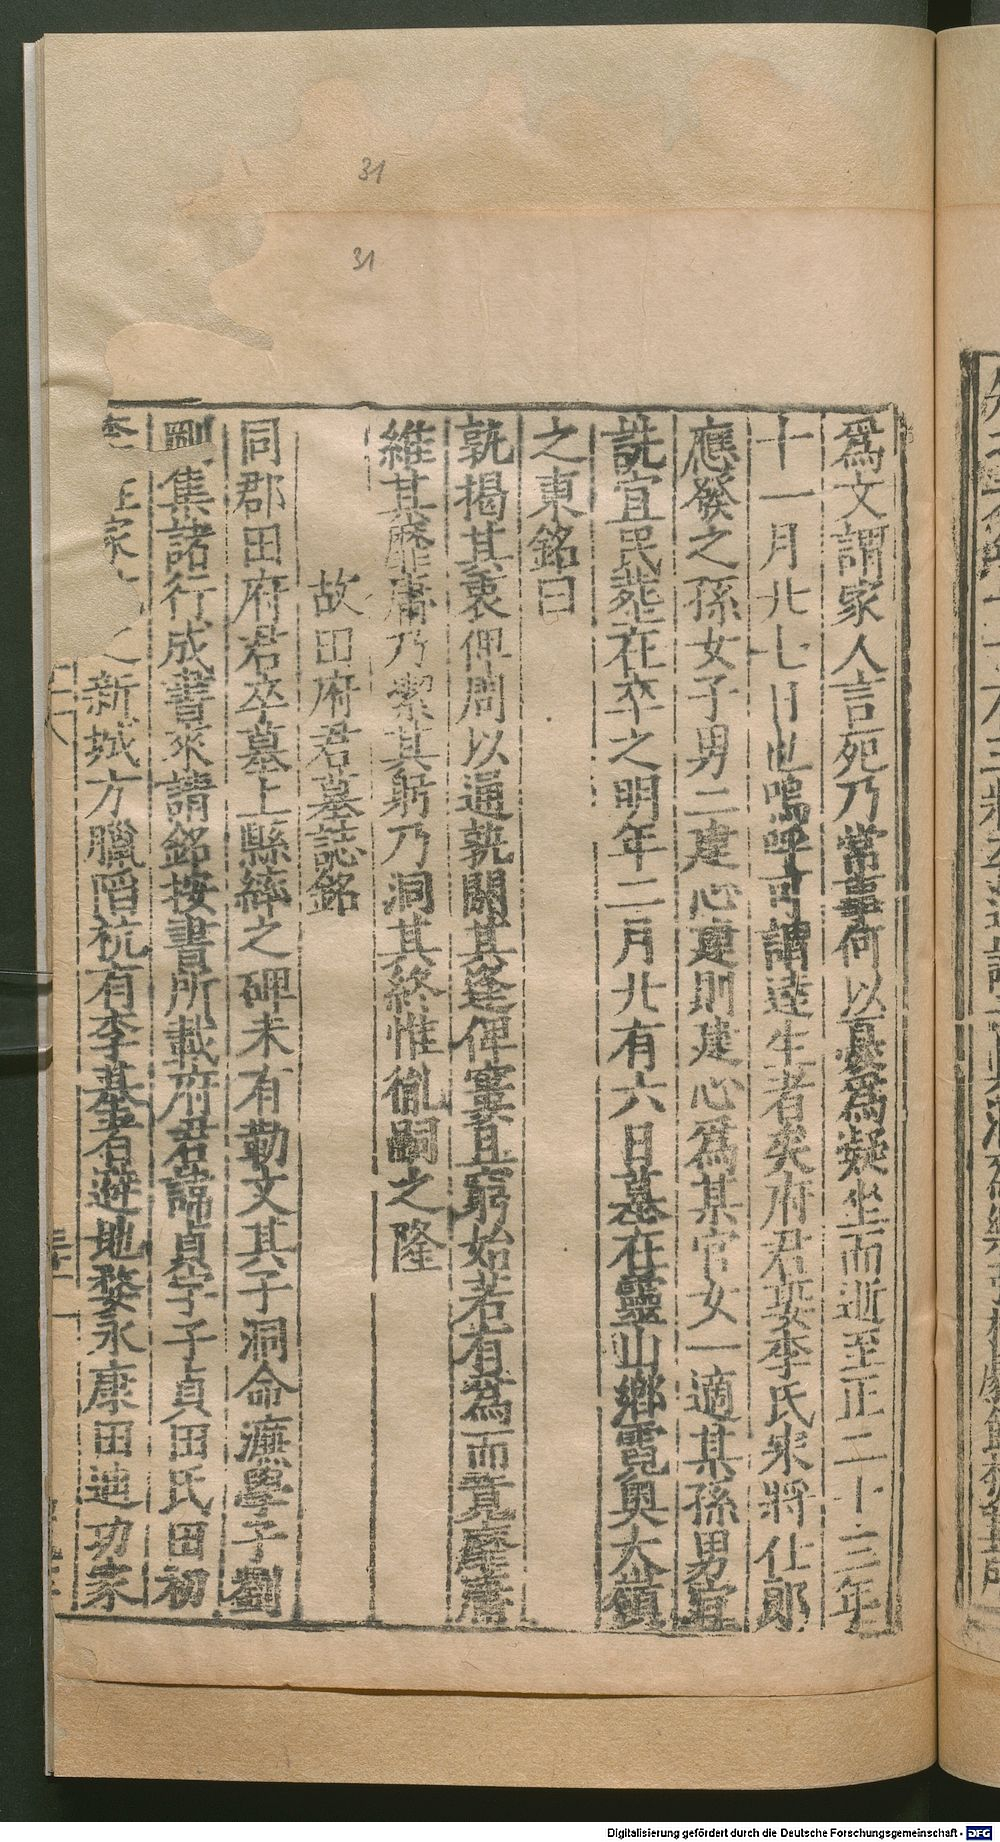 31
31
爲文謂家人言死乃常事何以憂爲凝坐而逝至正二十三年
十一月廿七日也嗚呼可謂達生者矣府君娶李氏宋將仕郎
應發之孫女子男二建心建則建心爲某官女一適某孫男宜
詵宜民葬在卒之明年二月廿有六日墓在靈山鄉霓奧大嶺
之東銘曰
孰揭其衷俾周以通孰關其逢俾窶且窮始若有爲而竟靡庸
維其靡庸乃潔其躬乃洞其終惟胤嗣之隆
故田府君墓誌銘
同郡田府君卒墓上縣繂之碑未有勒文其子洞命濂學子劉
剛集諸行成書來請銘按書所載府君諱貞字子貞田氏田初
家 新城方臘陷杭有李基者避地婺永康田迪功家
Digitalisierung gefördert durch die Deutsche Forschungsgemeinschaft - DFG